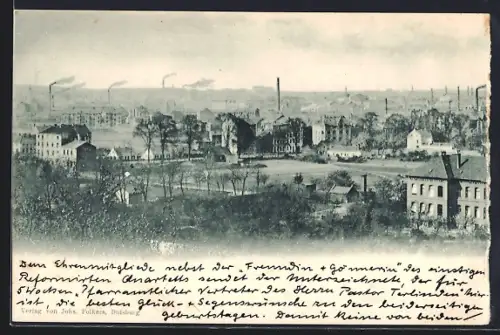 Dem Ehrenmitgliede nebst der „Freundin + Gönnerin" des einstigen
Reformirten Quartetts sendet der Unterzeichnete, der für
5 Wochen „Pfarramtlicher Vertreter des Herrn Pastor Terlinden" hier
ist, die besten Glück- + Segenswünsche zu den beiderseitigen
Geburtstagen. Damit Keine von beiden
Verlag von Johs. Fülkers, Duisburg